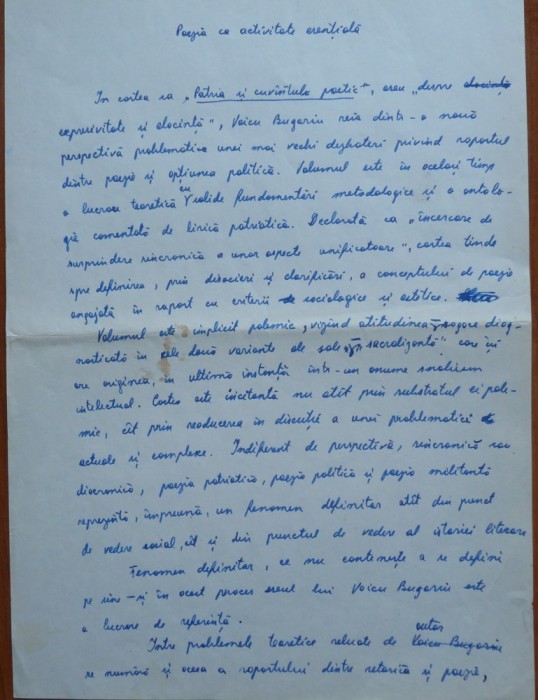 Poezia ca activitate esențială
In cartea sa „Patria și cuvîntul poetic", eseu „despre elocință
expresivitate și elocință", Voicu Bugariu reia dintr-o nouă
perspectivă problematica unei mai vechi dezbateri privind raportul
dintre poezie și opțiunea politică. Volumul este în același timp
o lucrare teoretică cu solide fundamentări metodologice și o antolo-
gie comentată de lirică patriotică. Declarată ca „încercare de
surprindere sincronică a unor aspecte unificatoare", cartea tinde
spre definirea, prin disocieri și clarificări, a conceptului de poezie
angajată în raport cu criterii sociologice și estetice.
Volumul este implicit polemic, vizînd atitudinea diag-
nosticată în cele două variante ale sale, sacralizantă" care își
are originea, în ultimă instanță într-un anume snobism
intelectual. Cartea este incitantă nu atît prin substratul ei pole-
mic, cît prin readucerea în discuție a unei problematici
actuale și complexe. Indiferent de perspectivă, sincronică sau
diacronică, poezia patriotică, poezia politică și poezia militantă
reprezintă, împreună, un fenomen definitor atît din punct
de vedere social, cît și din punctul de vedere al istoriei literare
Fenomen definitor, ce nu contenește a se defini
pe sine – și în acest proces eseul lui Voicu Bugariu este
o lucrare de referință.
Între problemele teoretice reluate de Voicu Bugariu autor
se numără și aceea a raportului dintre retorică și poezie,